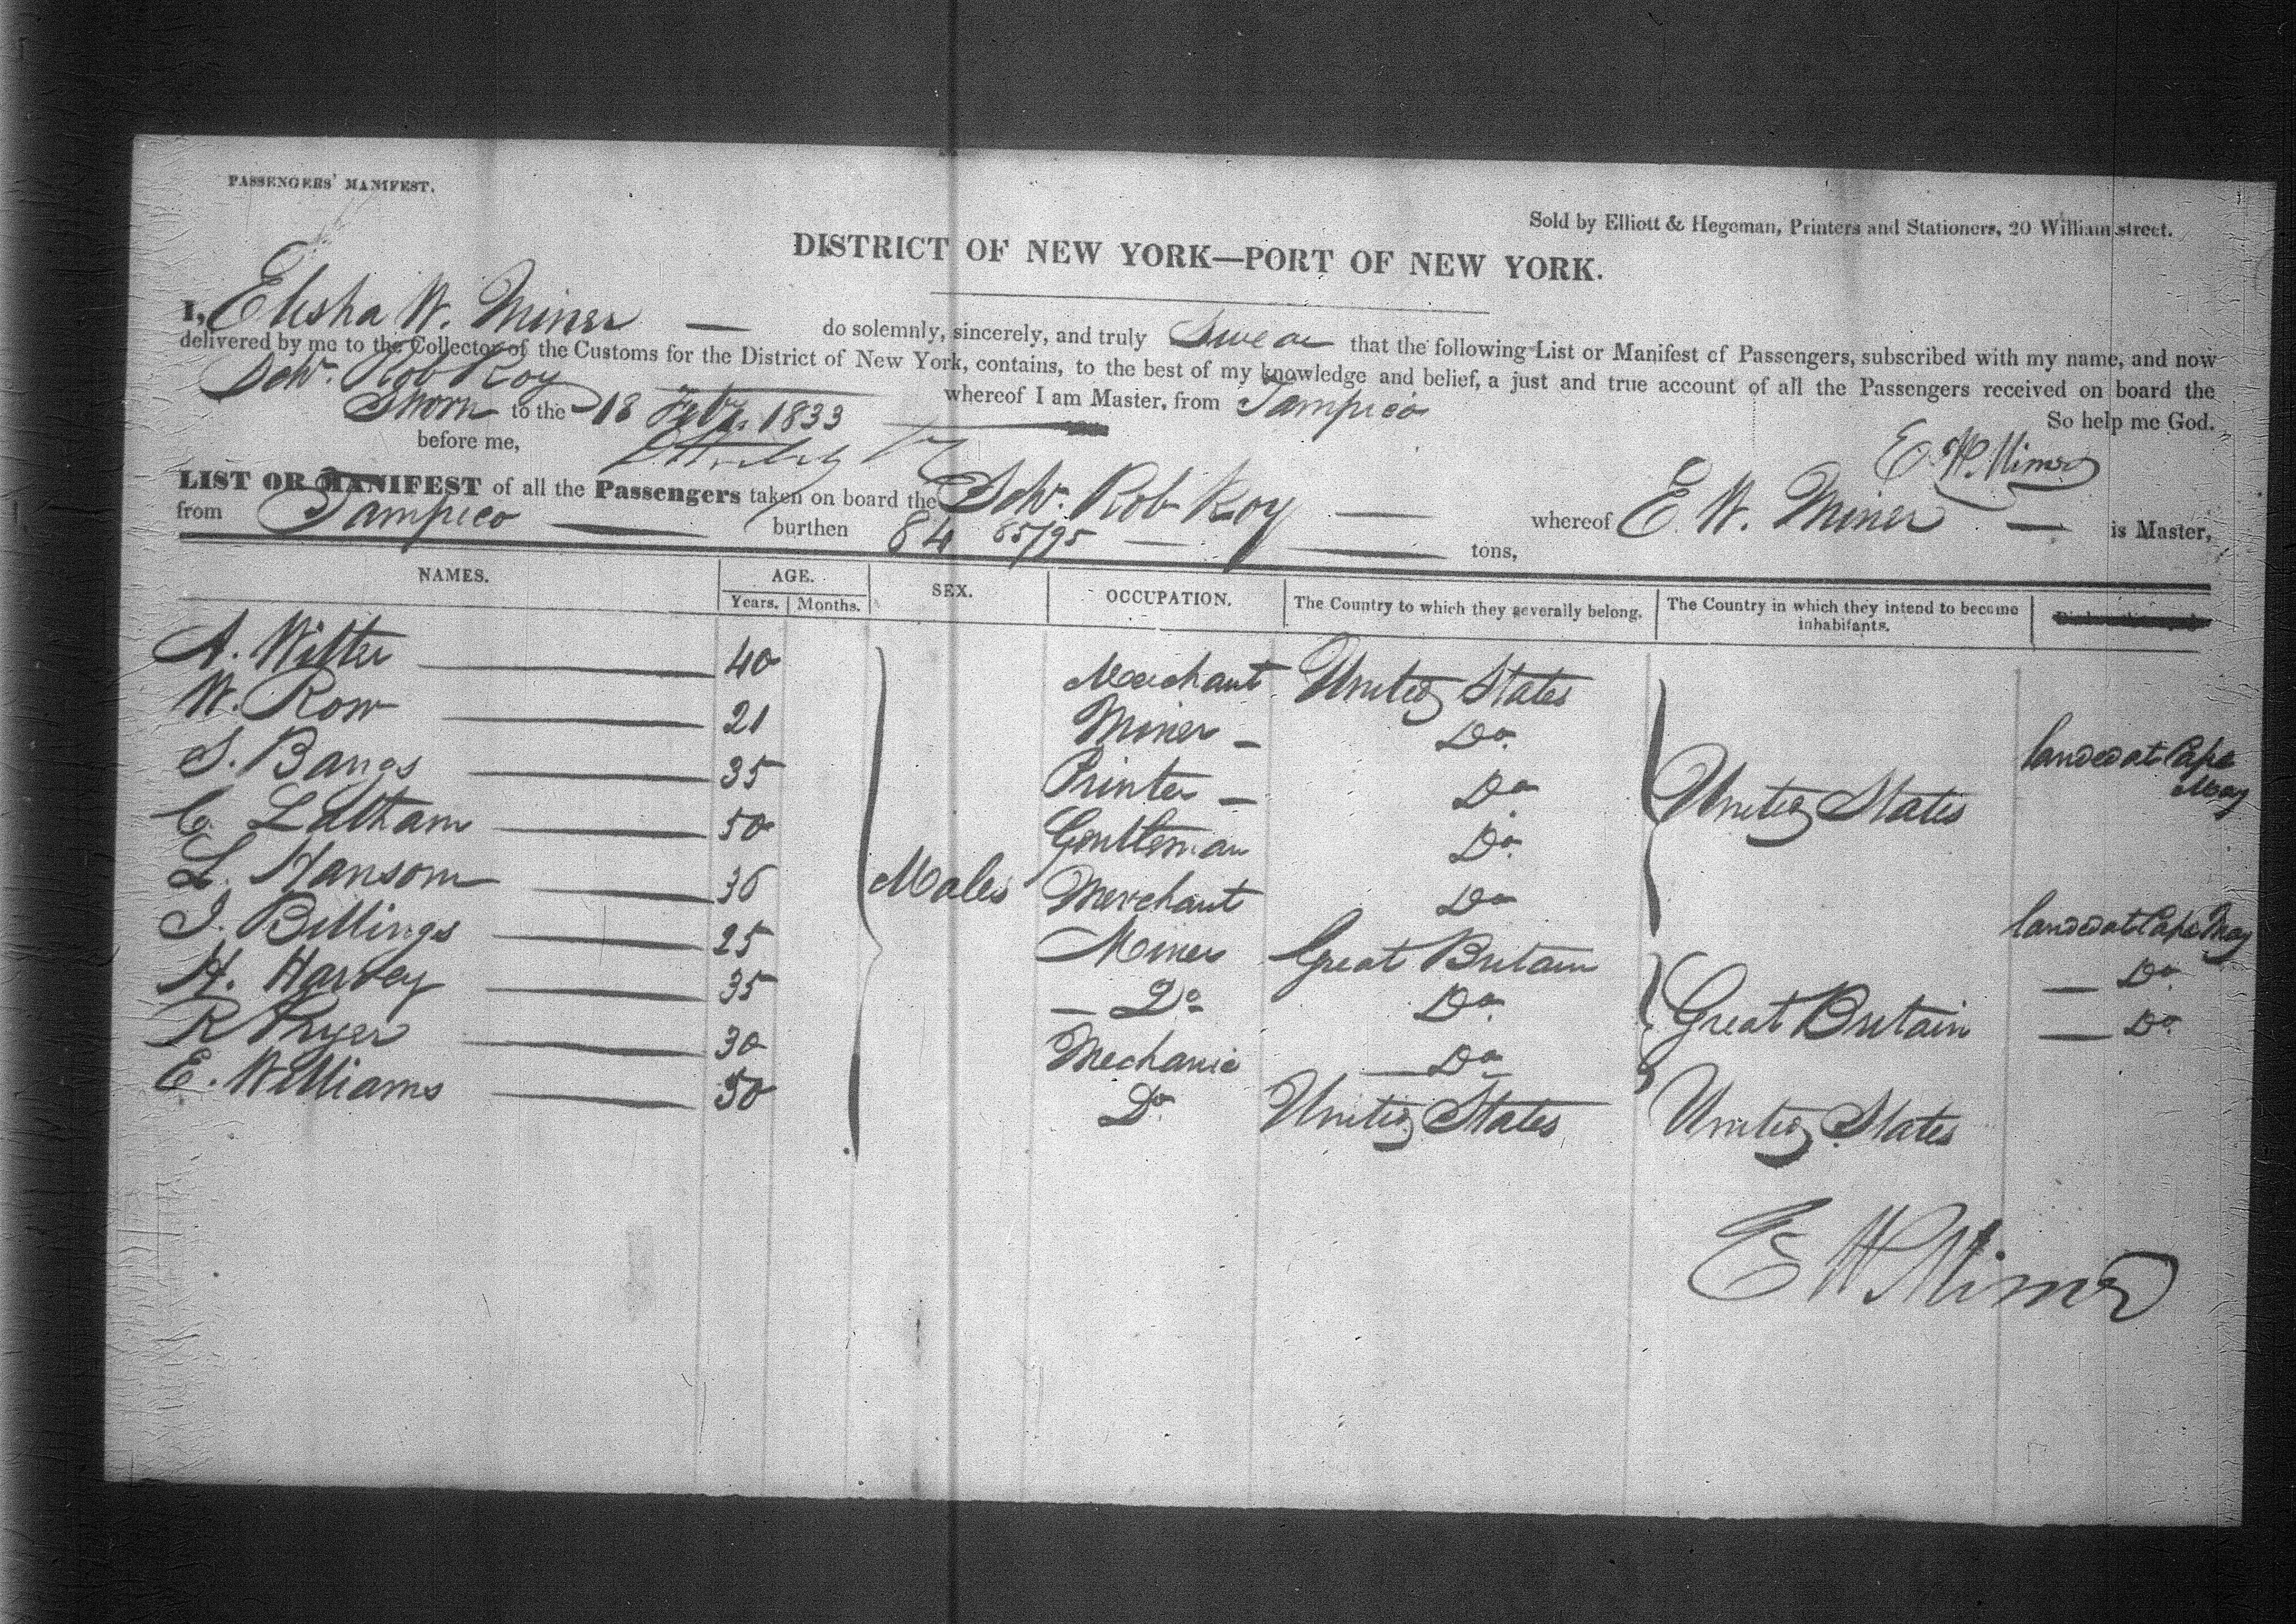 PASSENGERS' MANIFEST.
Sold by Elliott & Hegeman, Printers and Stationers, 20 William street.
DISTRICT OF NEW YORK—PORT OF NEW YORK.
I, Elisha W. Miner — do solemnly, sincerely, and truly Swear that the following List or Manifest of Passengers, subscribed with my name, and now
delivered by me to the Collector of the Customs for the District of New York, contains, to the best of my knowledge and belief, a just and true account of all the Passengers received on board the
Schr. Rob Roy whereof I am Master, from Tampico
Sworn to the 18 Feby. 1833 So help me God.
before me, E. W. Miner
LIST OR MANIFEST of all the Passengers taken on board the Schr. Rob Roy — whereof E. W. Miner — is Master,
from Tampico — burthen 84 65/95 — tons,
NAMES. AGE. SEX. OCCUPATION. The Country to which they severally belong. The Country in which they intend to become inhabitants.
Years. Months.
A. Witter 40 Merchant United States
W. Row 21 Miner — Do. landed at Cape May
S. Bangs 35 Printer — Do United States
C. Latham 50 Gentleman Do.
L. Hansom 36 Males Merchant Do
J. Billings 25 Miner Great Britain landed at Cape May
H. Harvey 35 — Do Do. Great Britain — Do.
R Pryer 30 Mechanic — Do — Do.
E. Williams 50 Do. United States United States
E W Miner